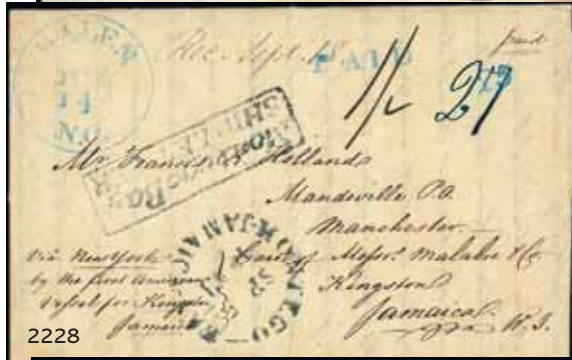 SALEM
14
N.C.
Rec. Sept. 18
PAID
paid
1/2 27
MONTEGO BAY
SHIP LETTER
Mr. Francis R. Holland
Mandeville P.O.
Manchester
Care of Messrs. Malabre & Co.
Kingston
Jamaica
W. I.
MONTEGO BAY-JAMAICA
SP
Via New York
by the first American
Vessel for Kingston
Jamaica
2228